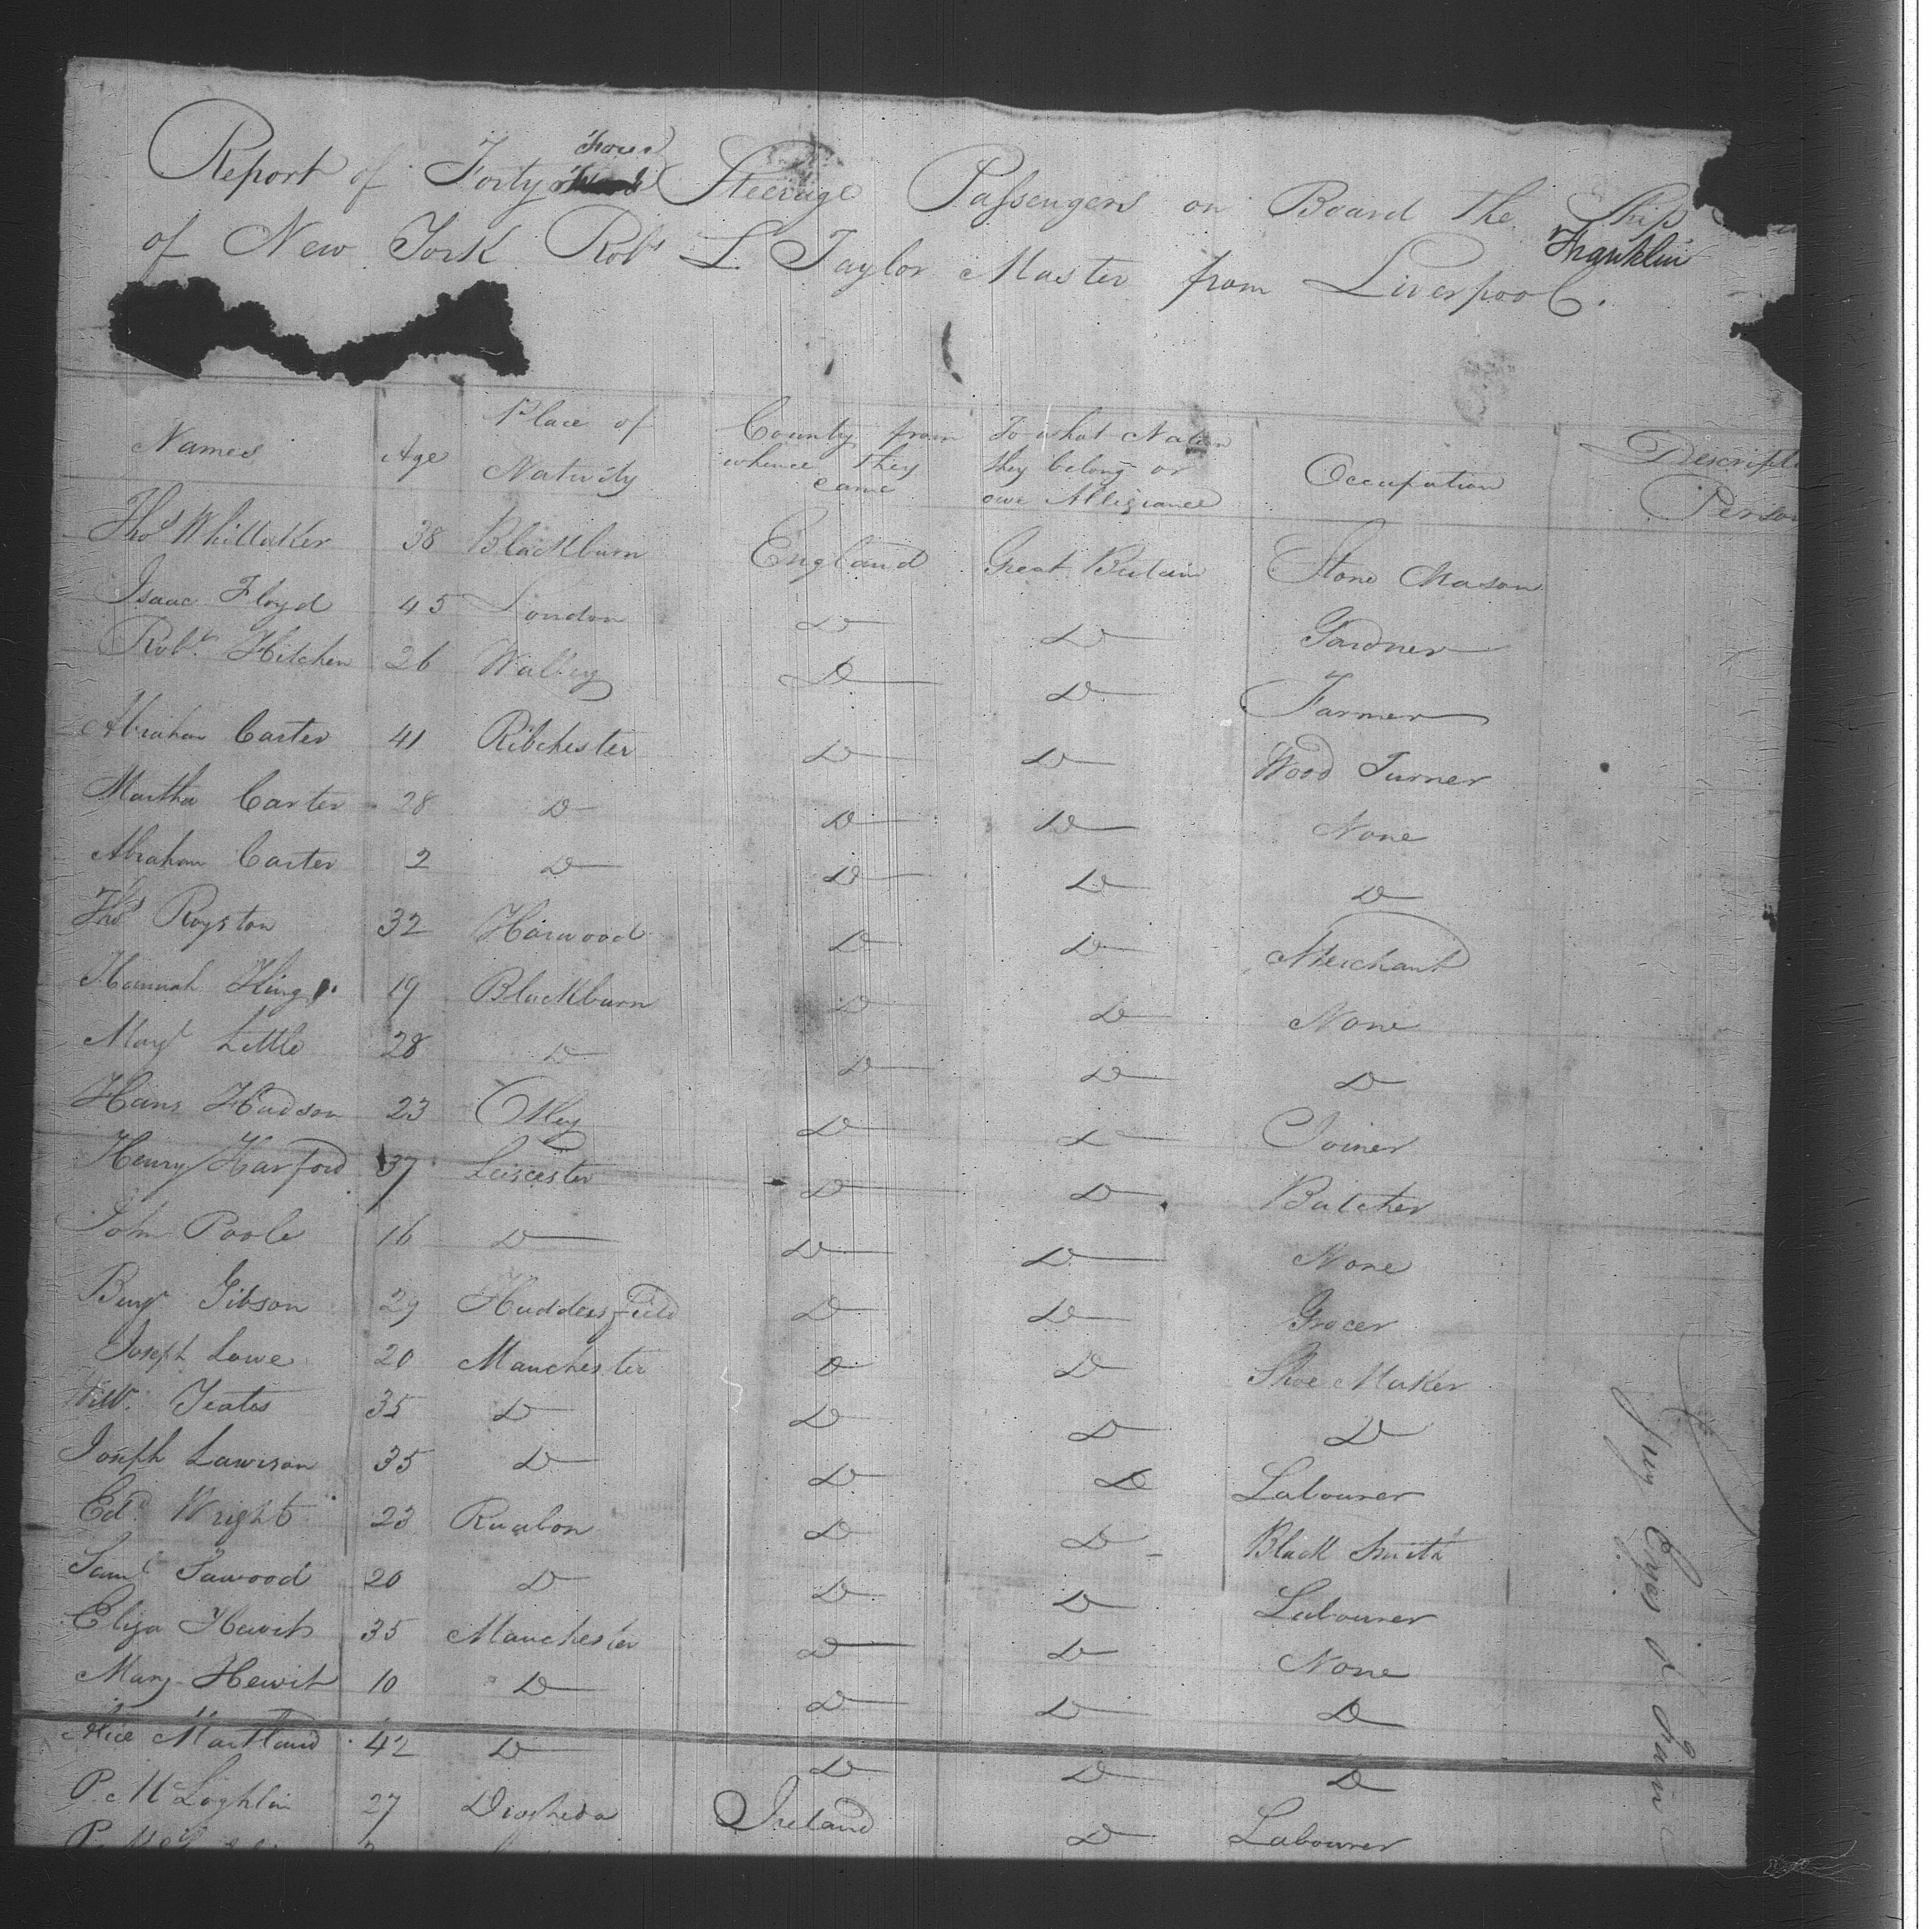 Report of Forty Four Steerage Passengers on Board the Ship Franklin
of New York Robt L. Taylor Master from Liverpool.
Names Age Place of Nativity County from whence they came To what Nation they belong or owe Allegiance Occupation Descripti Person
Thos Whittaker 38 Blackburn England Great Britain Stone Mason
Isaac Floyd 45 London Do Do Gardner
Robt Hitchen 26 Walley Do Do Farmer
Abraham Carter 41 Ribchester Do Do Wood Turner
Martha Carter 28 Do Do Do None
Abraham Carter 2 Do Do Do Do
Thos Royston 32 Harwood Do Do Merchant
Hannah King 19 Blackburn Do Do None
Margt Little 28 Do Do Do Do
Hans Hudson 23 Otley Do Do Joiner
Henry Harford 37 Leicester Do Do Butcher
John Poole 16 Do Do Do None
Benjn Gibson 29 Huddersfield Do Do Grocer
Joseph Lowe 20 Manchester Do Do Shoe Maker
Willm Yeates 35 Do Do Do Do
Joseph Lawrson 35 Do Do Do Labourer
Edd Wright 23 Ruabon Do Do Black Smith
Saml Sawood 20 Do Do Do Labourer
Eliza Hewit 35 Manchester Do Do None
Mary Hewit 10 Do Do Do Do
Alice Martland 42 Do Do Do Do
P. McLoghlin 27 Drogheda Ireland Do Labourer